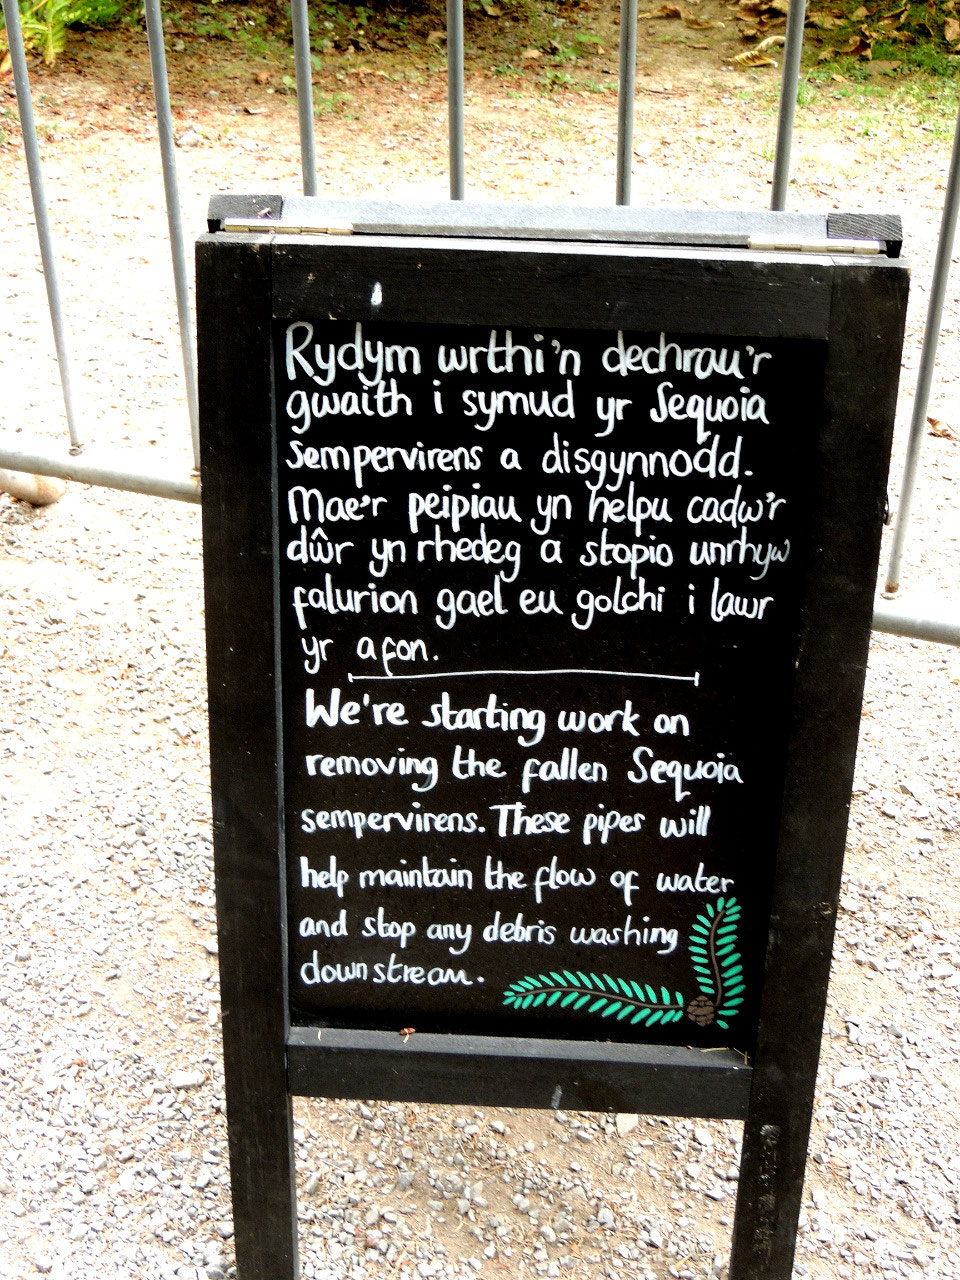 Rydym wrthi'n dechrau'r
gwaith i symud yr Sequoia
sempervirens a disgynnodd.
Mae'r peipiau yn helpu cadw'r
dŵr yn rhedeg a stopio unrhyw
falurion gael eu golchi i lawr
yr afon.
We're starting work on
removing the fallen Sequoia
sempervirens. These pipes will
help maintain the flow of water
and stop any debris washing
downstream.